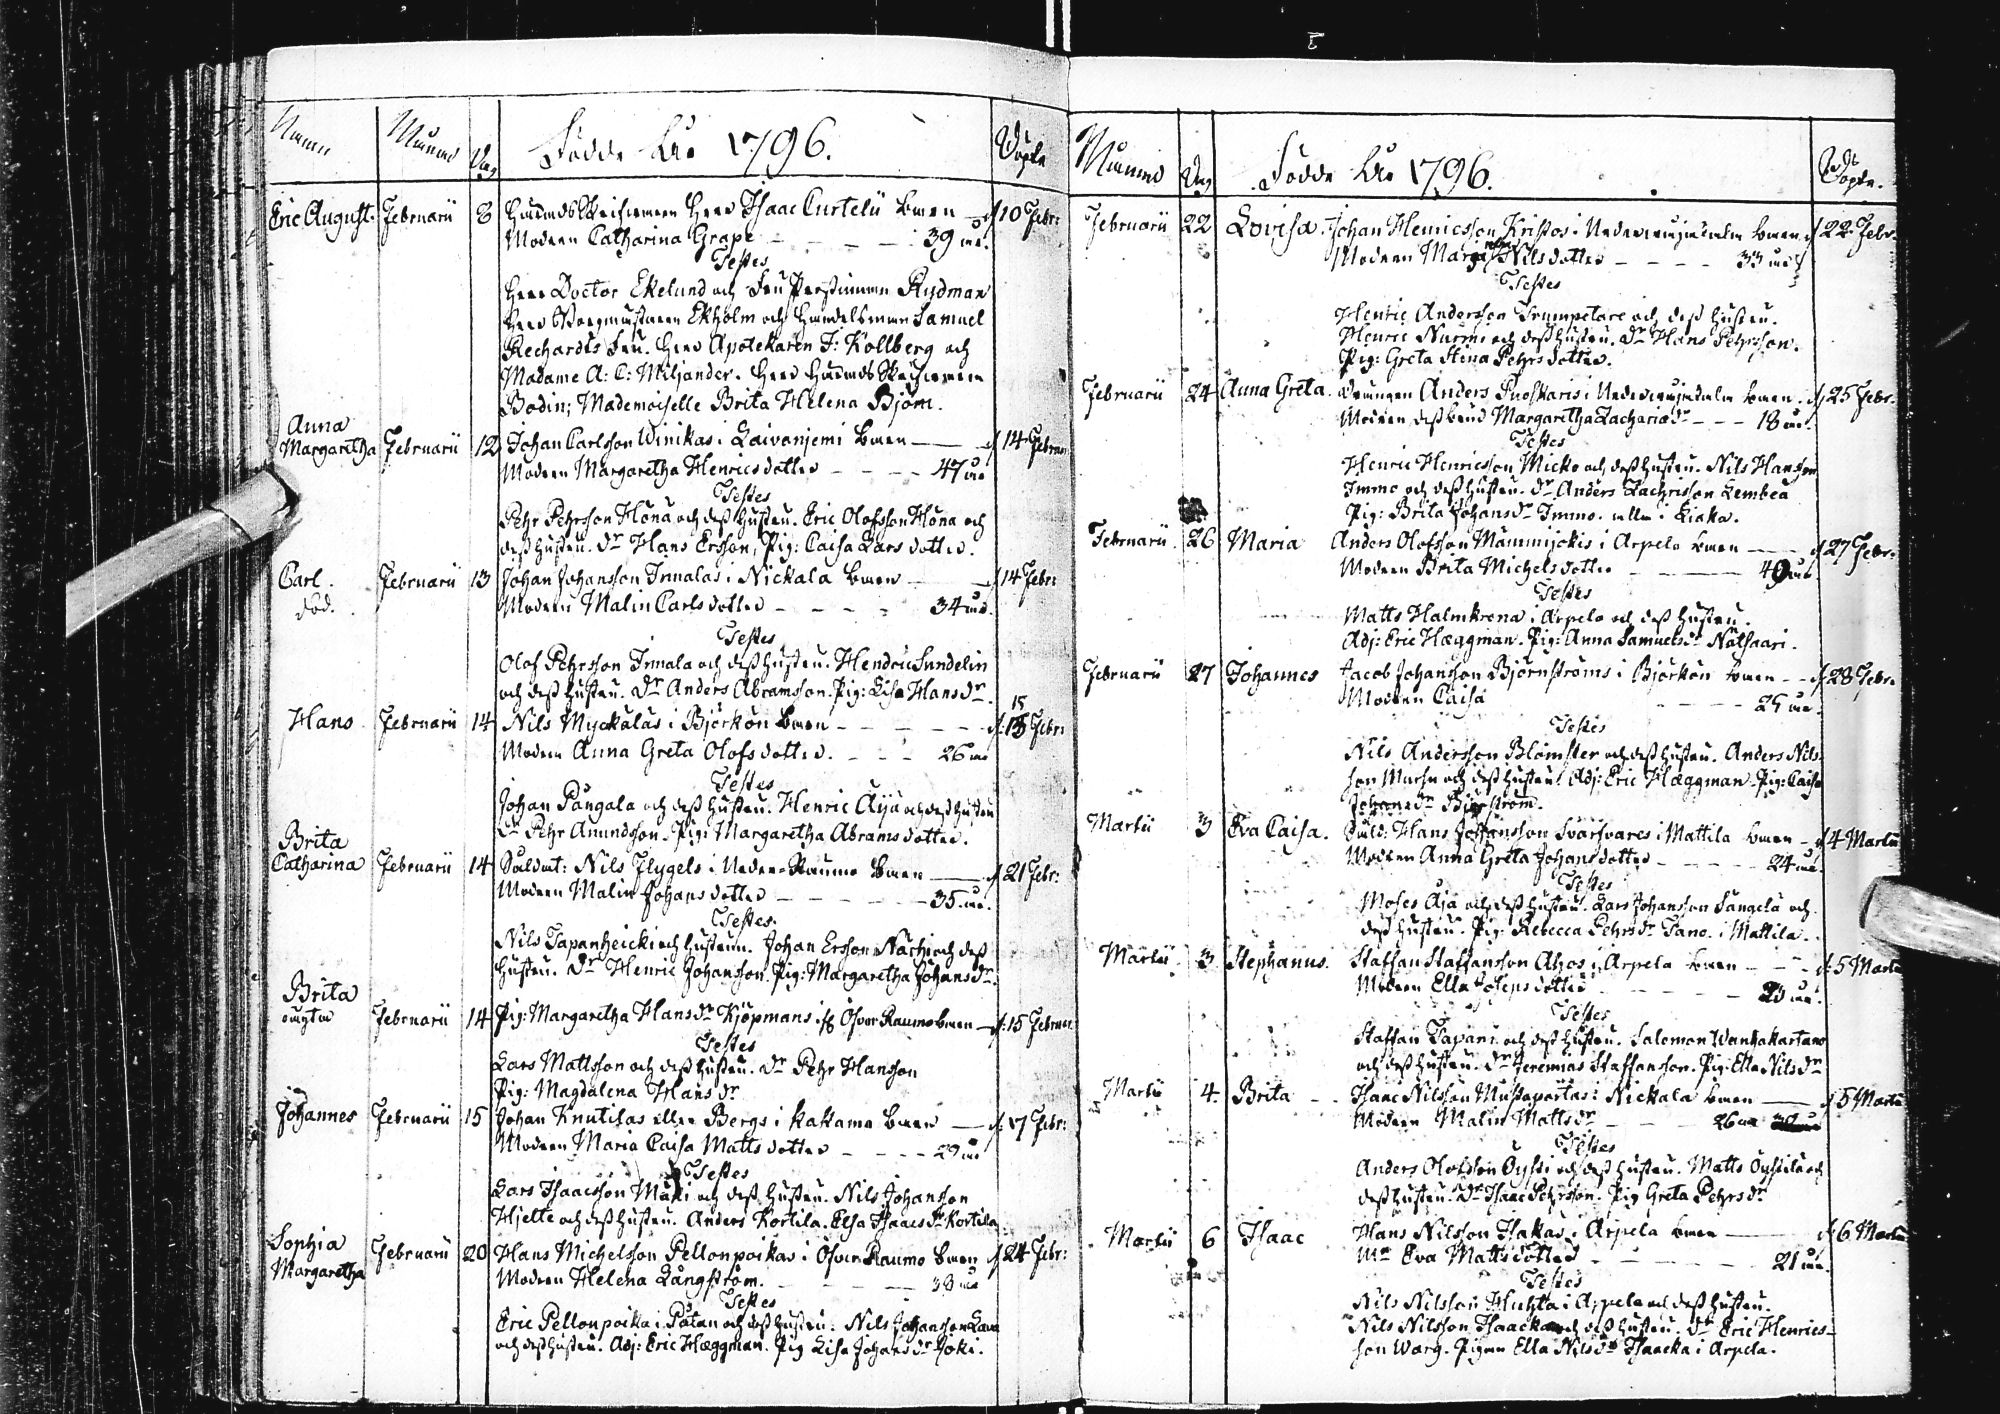 Namn Månad Dag Födde År 1796. Döpte
Eric August. Februarii 8 Häradsskrifvaren Herr Isaac Curtelii barn 10 Febr:
Modren Catharina Grape 39 år.
Testes
Herr Doctor Ekelund och Fru Prostinnan Rydman
Herr Borgmästaren Ekholm och Handelsman Samuel
Rechardts Fru. Herr Apotekaren J: Kollberg och
Madame A: C: Miljander. Herr Härads Skrifvaren
Bodin; Mademoiselle Brita Helena Björn.
Anna
Margaretha Februarii 12 Johan Carlsson Winikas i Laivanjemi barn 14 Febru
Modren Margaretha Henricsdotter 47 år
Testes
Pehr Pehrsson Höna och dess hustru. Eric Olofsson Höna och
dess hustru. Dr Hans Ersson, Pig: Caisa Lars dotter.
Carl Februarii 13 Johan Johansson Irmalas i Nickala barn 14 Febr:
död. Modren Malin Carlsdotter 34 år.
Testes
Olof Pehrsson Irmala och dess hustru. Hendric Sundelin
och dess hustru. Dr Anders Abramsson. Pig: Lisa Hansdr
15
Hans Februarii 14 Nils Myckälas i Björkön barn Febr:
Modren Anna Greta Olofsdotter. 26 år
Testes
Johan Pångala och dess hustru. Henric Äijä och dess hustru
Dr Pehr Amundsson. Pig: Margaretha Abramsdotter.
Brita
Catharina Februarii 14 Soldat: Nils Flygels i Neder-Raumo barn 21 Febr:
Modren Malin Johansdotter 35 år.
Testes.
Nils Tapanheicki och hustrun. Johan Ersson Närhi och dess
hustru. Dr Henric Johansson. Pig: Margaretha Johansdr.
Brita
oägta Februarii 14 Pig: Margaretha Hansdr Kjöpmans i Öfver Raumo barn 15 Februar
Testes
Lars Mattsson och dess hustru. Dr Pehr Hansson
Pig: Magdalena Hansdr
Johannes Februarii 15 Johan Knutilas eller Bergs i Kakamo barn 17 Febr:
Modren Maria Caisa Mattsdotter 29 år
Testes
Lars Isaacsson Mäki och dess hustru. Nils Johansson
Hjelte och dess hustru. Anders Kortila. Elsa Isaacsdr Kortila
Sophia Februarii 20 Hans Michelsson Pellonpoikas i Öfver Raumo barn 24 Febr:
Margaretha Modren Helena Långström. 38 år
Testes
Eric Pellonpoika i Påtan och dess hustru. Nils Johansson Lava
och dess hustru. Adj: Eric Hæggman. Pig Lisa Johansdr Joki.
Månad Dag Födde År 1796. Döpte.
Februarii 22 Lovisa Johan Henricsson Kristos i Nedervojackala barn 22 Febr.
Modren Margretha Nilsdotter 33 år
Testes
Henric Andersson Trumpetare och dess hustru.
Henric Nurmi och dess hustru. Dr Hans Pehrsson.
Pig: Greta Stina Pehrsdotter.
Februarii 24 Anna Greta. Drängen Anders Puoskaris i Nedervojackala barn. 25 Febr.
Modren dess brud Margaretha Zachariædr 18 år.
Testes
Henric Henricsson Micko och dess hustru. Nils Hansson
Immo och dess hustru. Dr Anders Zachrisson Lembea
Pig: Brita Johansdr Immo. alla i Liaka.
Februarii 26 Maria Anders Olofsson Mämmyckis i Arpelo barn 27 Febr:
Modren Brita Michelsdotter 40 år
Testes
Matts Halmkrona i Arpelo och dess hustru.
Adj: Eric Hæggman. Pig: Anna Samuelsdr Nätsaari.
Februarii 27 Johannes Jacob Johansson Björnströms i Björkön barn 28 Febr.
Modren Caisa 25 år.
Testes
Nils Andersson Blomster och dess hustru. Anders Nils-
son Marsu och dess hustru. Adj: Eric Hæggman. Pig: Caisa
Johansdr Björström.
Martii 3 Eva Caisa. Sold: Hans Johansson Svartvares i Mattila barn 4 Martii
Modren Anna Greta Johansdotter 24 år.
Testes
Moses Äijä och dess hustru. Lars Johansson Sangela och
dess hustru. Pig: Rebecca Pehrsdr Tano. i Mattila.
Martii 3 Stephanus. Staffan Staffansson Ahos i Arpela barn 5 Martii
Modren Ella Josepsdotter år.
Testes
Staffan Tapani och dess hustru. Salomon Wanhakartano
och dess hustru. Dr Jeremias Staffansson. Pig: Ella Nilsdr
Martii 4. Brita Isaac Nilsson Mustaparta i Nickala barn 5 Martii
Modren Malin Mattsdr 26 år
Testes
Anders Olofsson Öysti och dess hustru. Matts Öystilä och
dess hustru. Dr Isaac Pehrsson. Pig Greta Pehrsdr
Martii 6 Isaac Hans Nilsson Isakas i Arpela barn 6 Martii
Mr Eva Mattsdotter 21 år.
Testes
Nils Nilsson Huhta i Arpela och dess hustru.
Nils Nilsson Isaacka och dess hustru. Dr Eric Henrics-
son Warg. Pigan Ella Nilsdr Isaacka i Arpela.